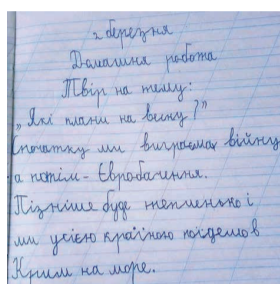 2 березня
Домашня робота
Твір на тему:
„Які плани на весну?"
Спочатку ми виграємо війну
а потім - Євробачення.
Пізніше буде тепленько і
ми усією країною поїдемо в
Крим на море.